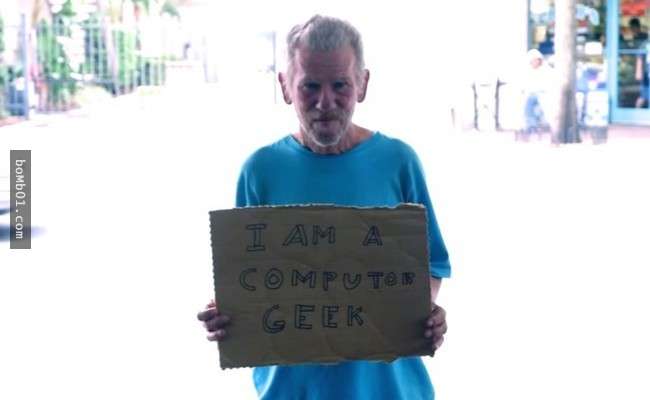 I AM A
COMPUTOR
GEEK
boMb01.com